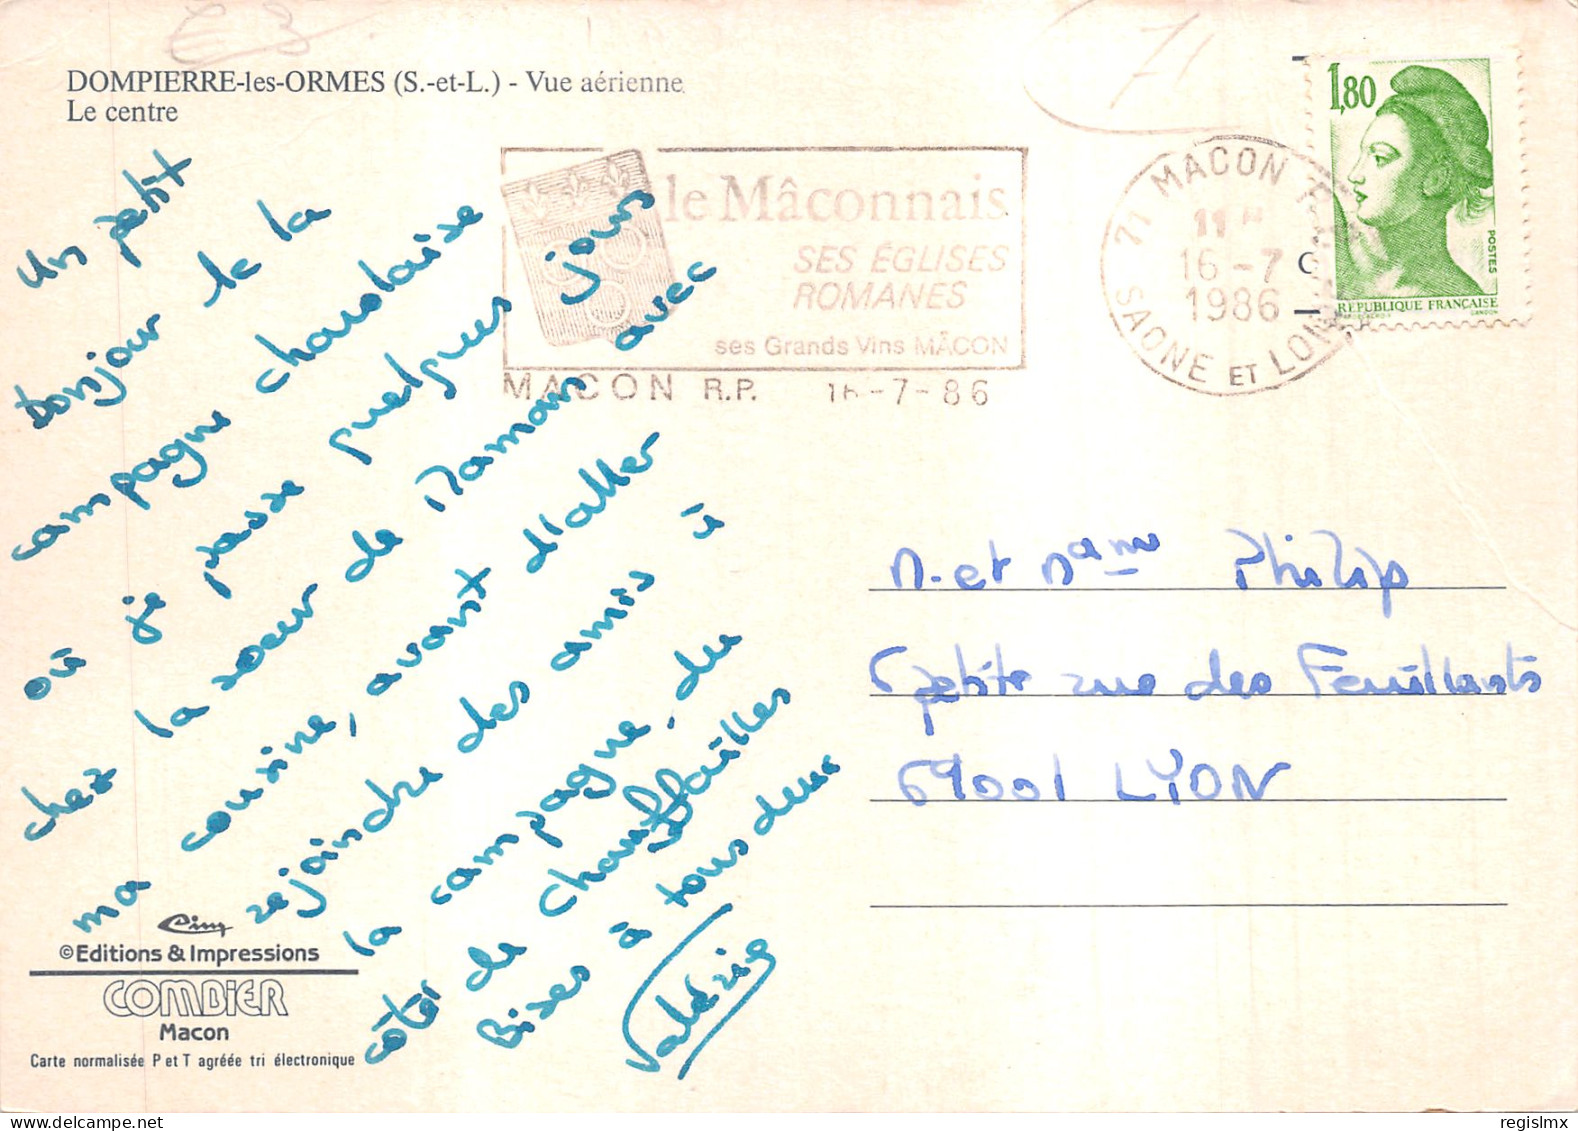 € 3
71
DOMPIERRE-les-ORMES (S.-et-L.) - Vue aérienne
Le centre
Un petit
bonjour de la
campagne charolaise
où je passe quelques jours
chez la soeur de Maman avec
ma cousine, avant d'aller
rejoindre des amis à
la campagne, du
côté de Chauffailles
Bises à tous deux
Valérie
Cim
© Editions & Impressions
COMBIER
Macon
Carte normalisée P et T agréée tri électronique
le Mâconnais
SES ÉGLISES
ROMANES
ses Grands Vins MÂCON
MACON R.P. 16-7-86
71 MACON R.P.
11 H
16-7
1986
SAONE ET LOIRE
1,80
POSTES
REPUBLIQUE FRANÇAISE
GANDON
M. et Mame Philip
6 petite rue des Feuillants
69001 LYON
regislmx